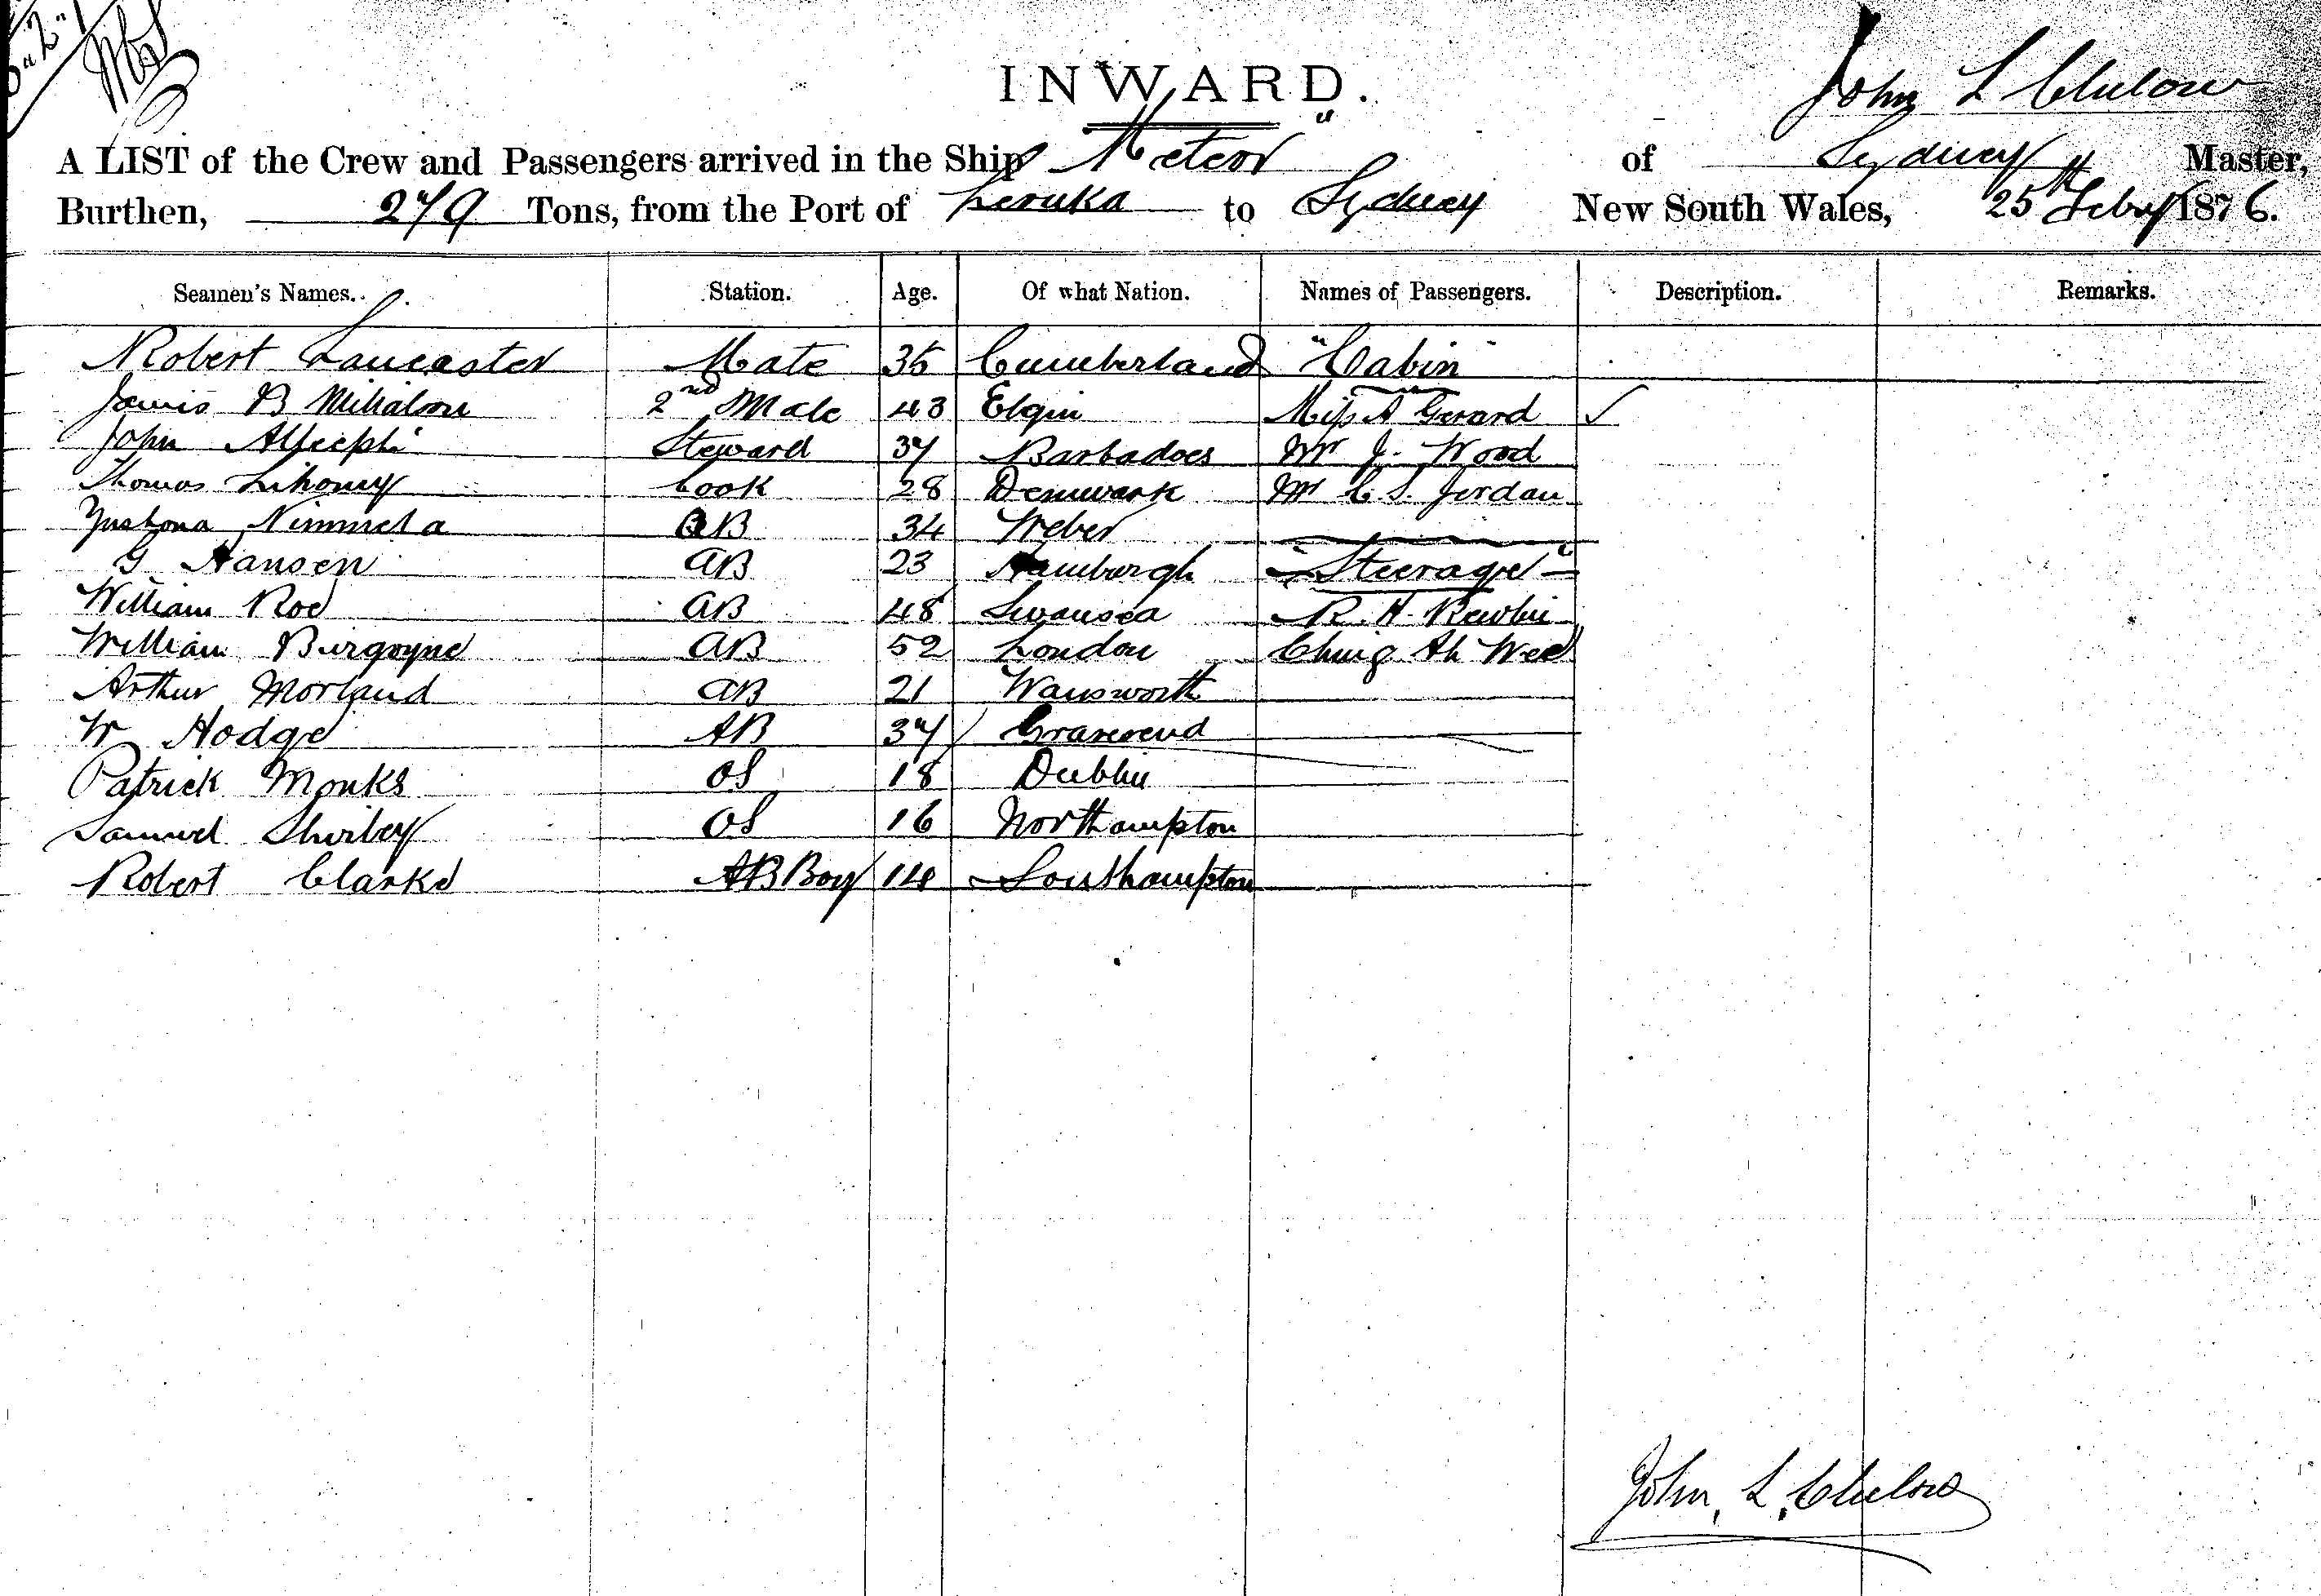 INWARD.
John L Clulow
A LIST of the Crew and Passengers arrived in the Ship Meteor of Sydney Master,
Burthen, 279 Tons, from the Port of Levuka to Sydney New South Wales, 25th Feby 1876.
Seamen's Names. Station. Age. Of what Nation. Names of Passengers. Description. Remarks.
Robert Lancaster Mate 35 Cumberland "Cabin"
James B 2nd Mate 43 Elgin Miss A Gerard ✓
John Steward 37 Barbadoes Mr J. Wood
Thomas Cook 28 Denmark Mr C. S. Jordan
AB 34 Weber
G Hansen AB 23 Hamburgh "Steerage"
William Roe AB 48 Swansea R. H.
William Burgoyne AB 52 London Ching Ah Wee
Arthur Morland AB 21 Wansworth
W Hodge AB 37 Gravesend
Patrick Monks OS 18 Dublin
Samuel OS 16 Northampton
Robert Clarke AB Boy 14 Southampton
John. L. Clulow